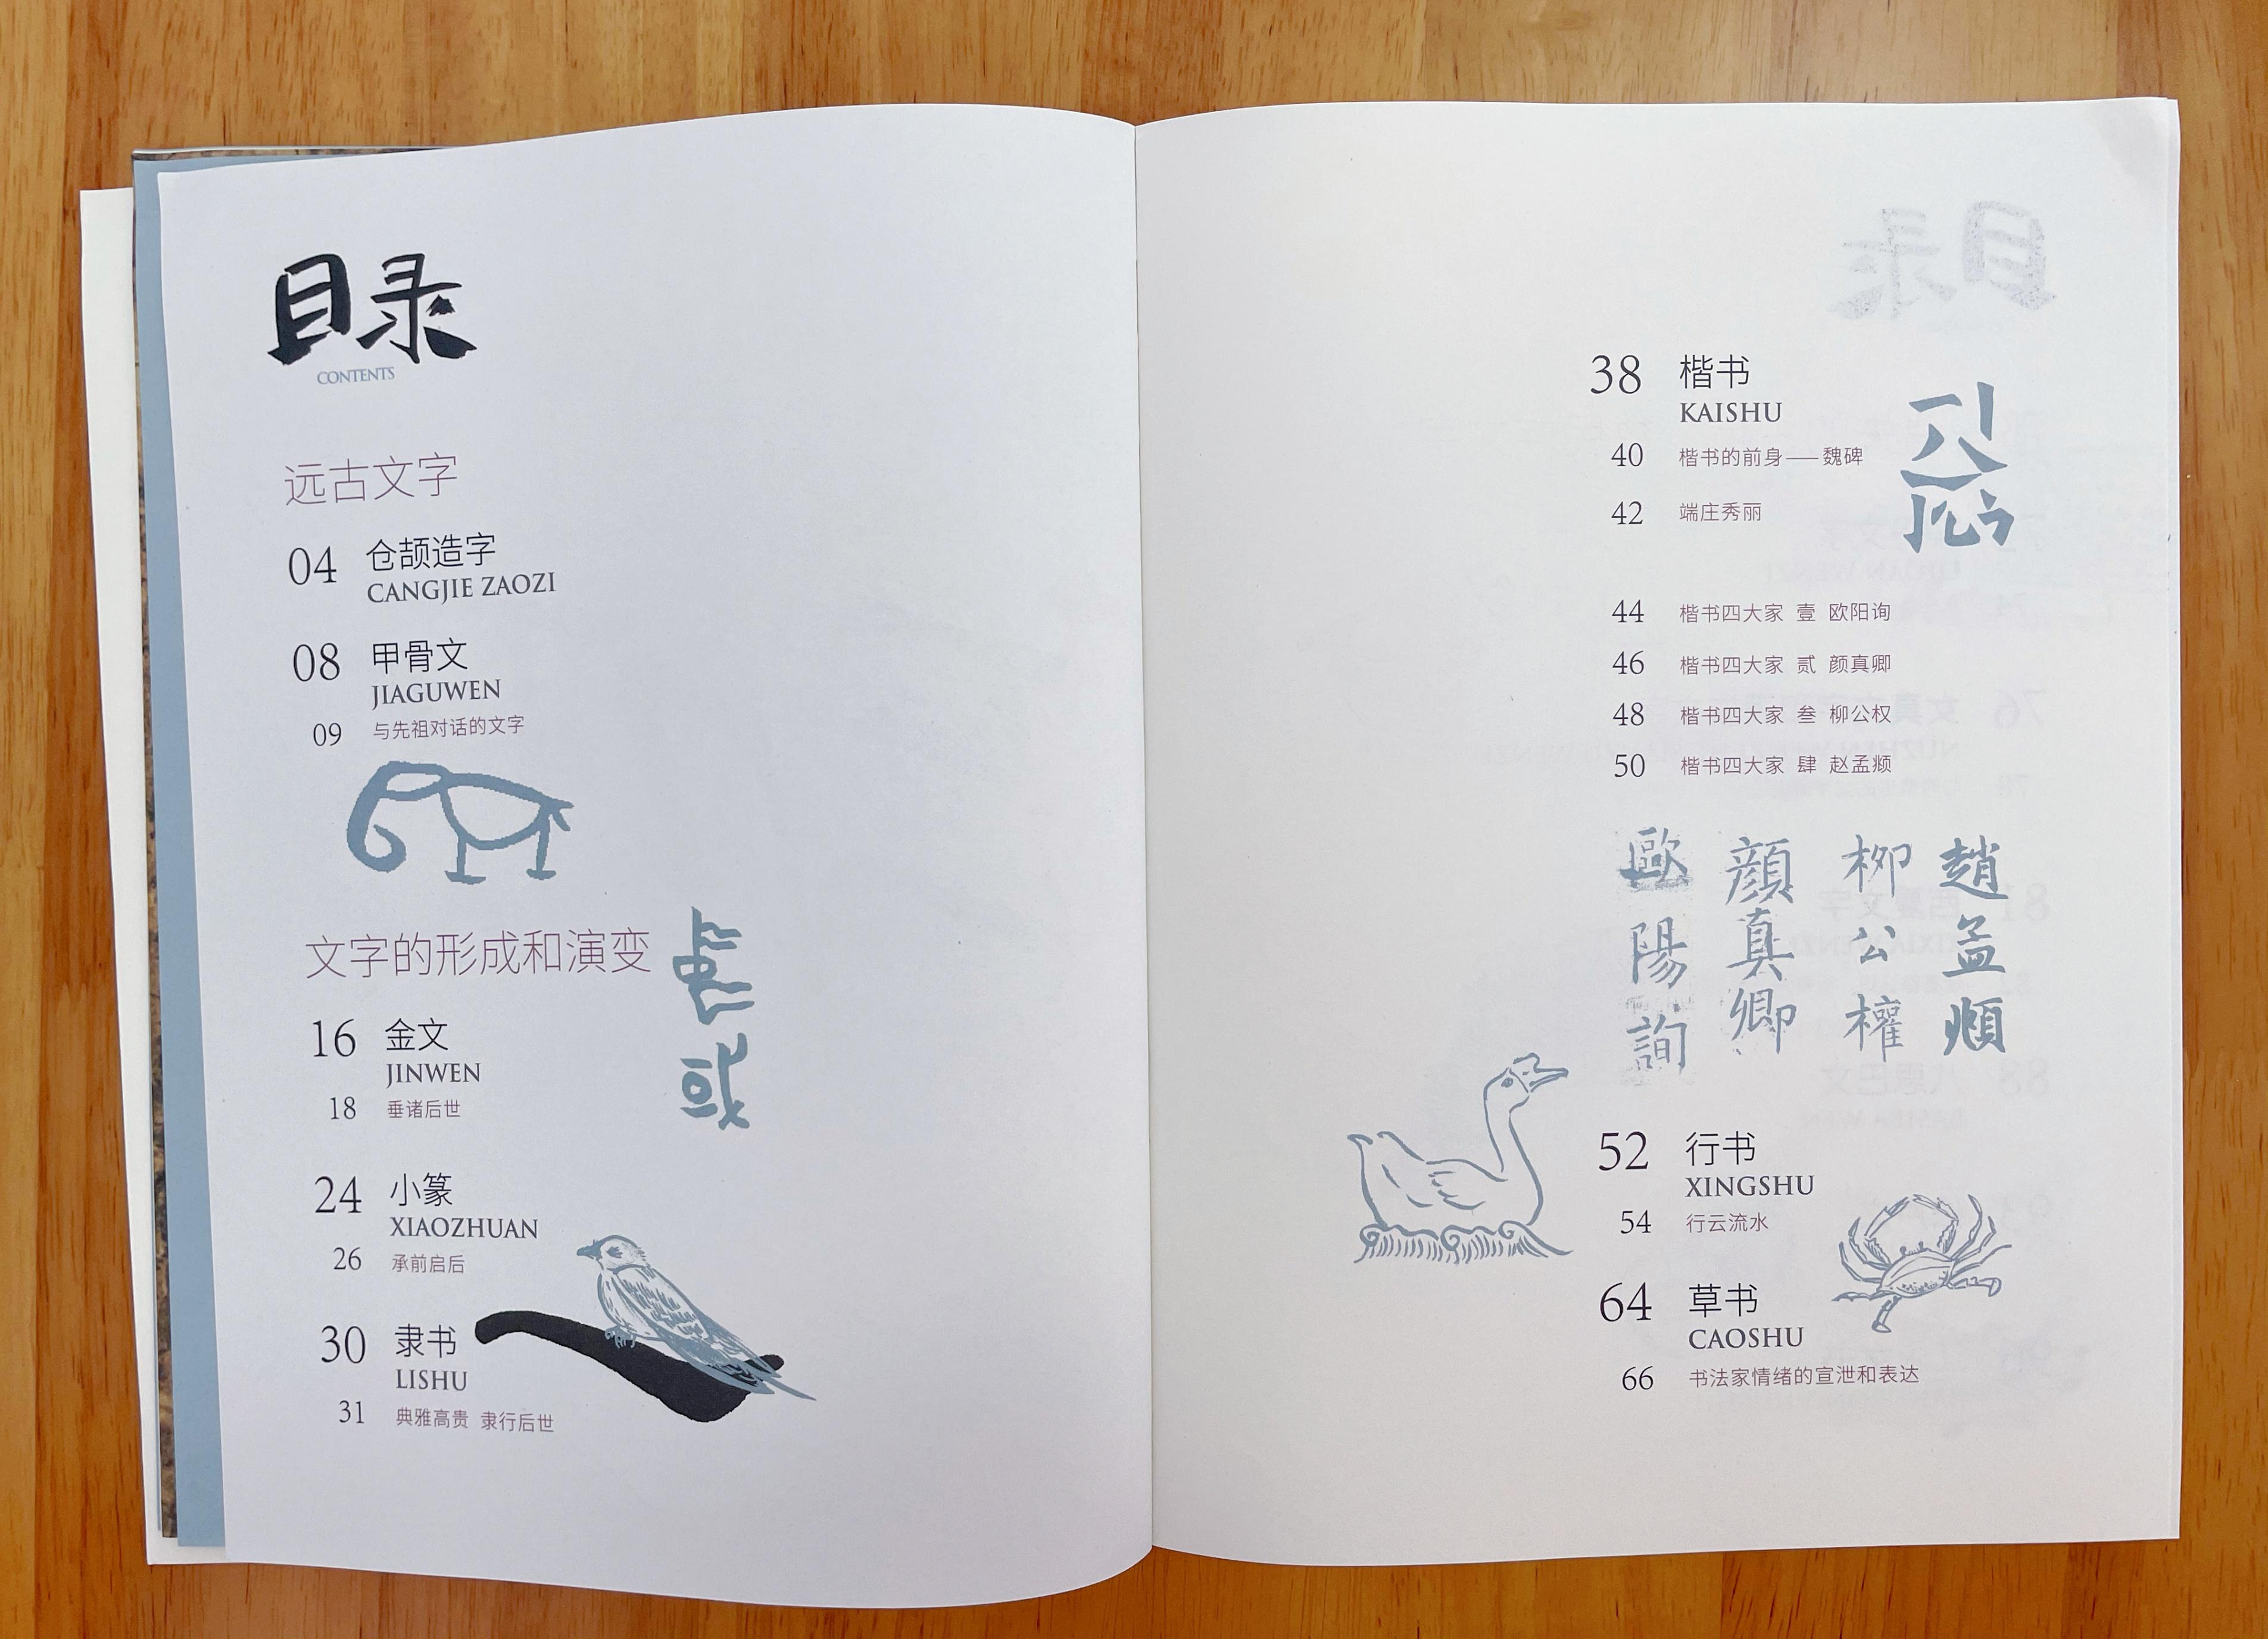 目录
CONTENTS
远古文字
04 仓颉造字
CANGJIE ZAOZI
08 甲骨文
JIAGUWEN
09 与先祖对话的文字
文字的形成和演变
16 金文
JINWEN
18 垂诸后世
24 小篆
XIAOZHUAN
26 承前启后
30 隶书
LISHU
31 典雅高贵 隶行后世
38 楷书
KAISHU
40 楷书的前身——魏碑
42 端庄秀丽
44 楷书四大家 壹 欧阳询
46 楷书四大家 贰 颜真卿
48 楷书四大家 叁 柳公权
50 楷书四大家 肆 赵孟頫
歐陽詢
顔真卿
柳公權
趙孟頫
52 行书
XINGSHU
54 行云流水
64 草书
CAOSHU
66 书法家情绪的宣泄和表达